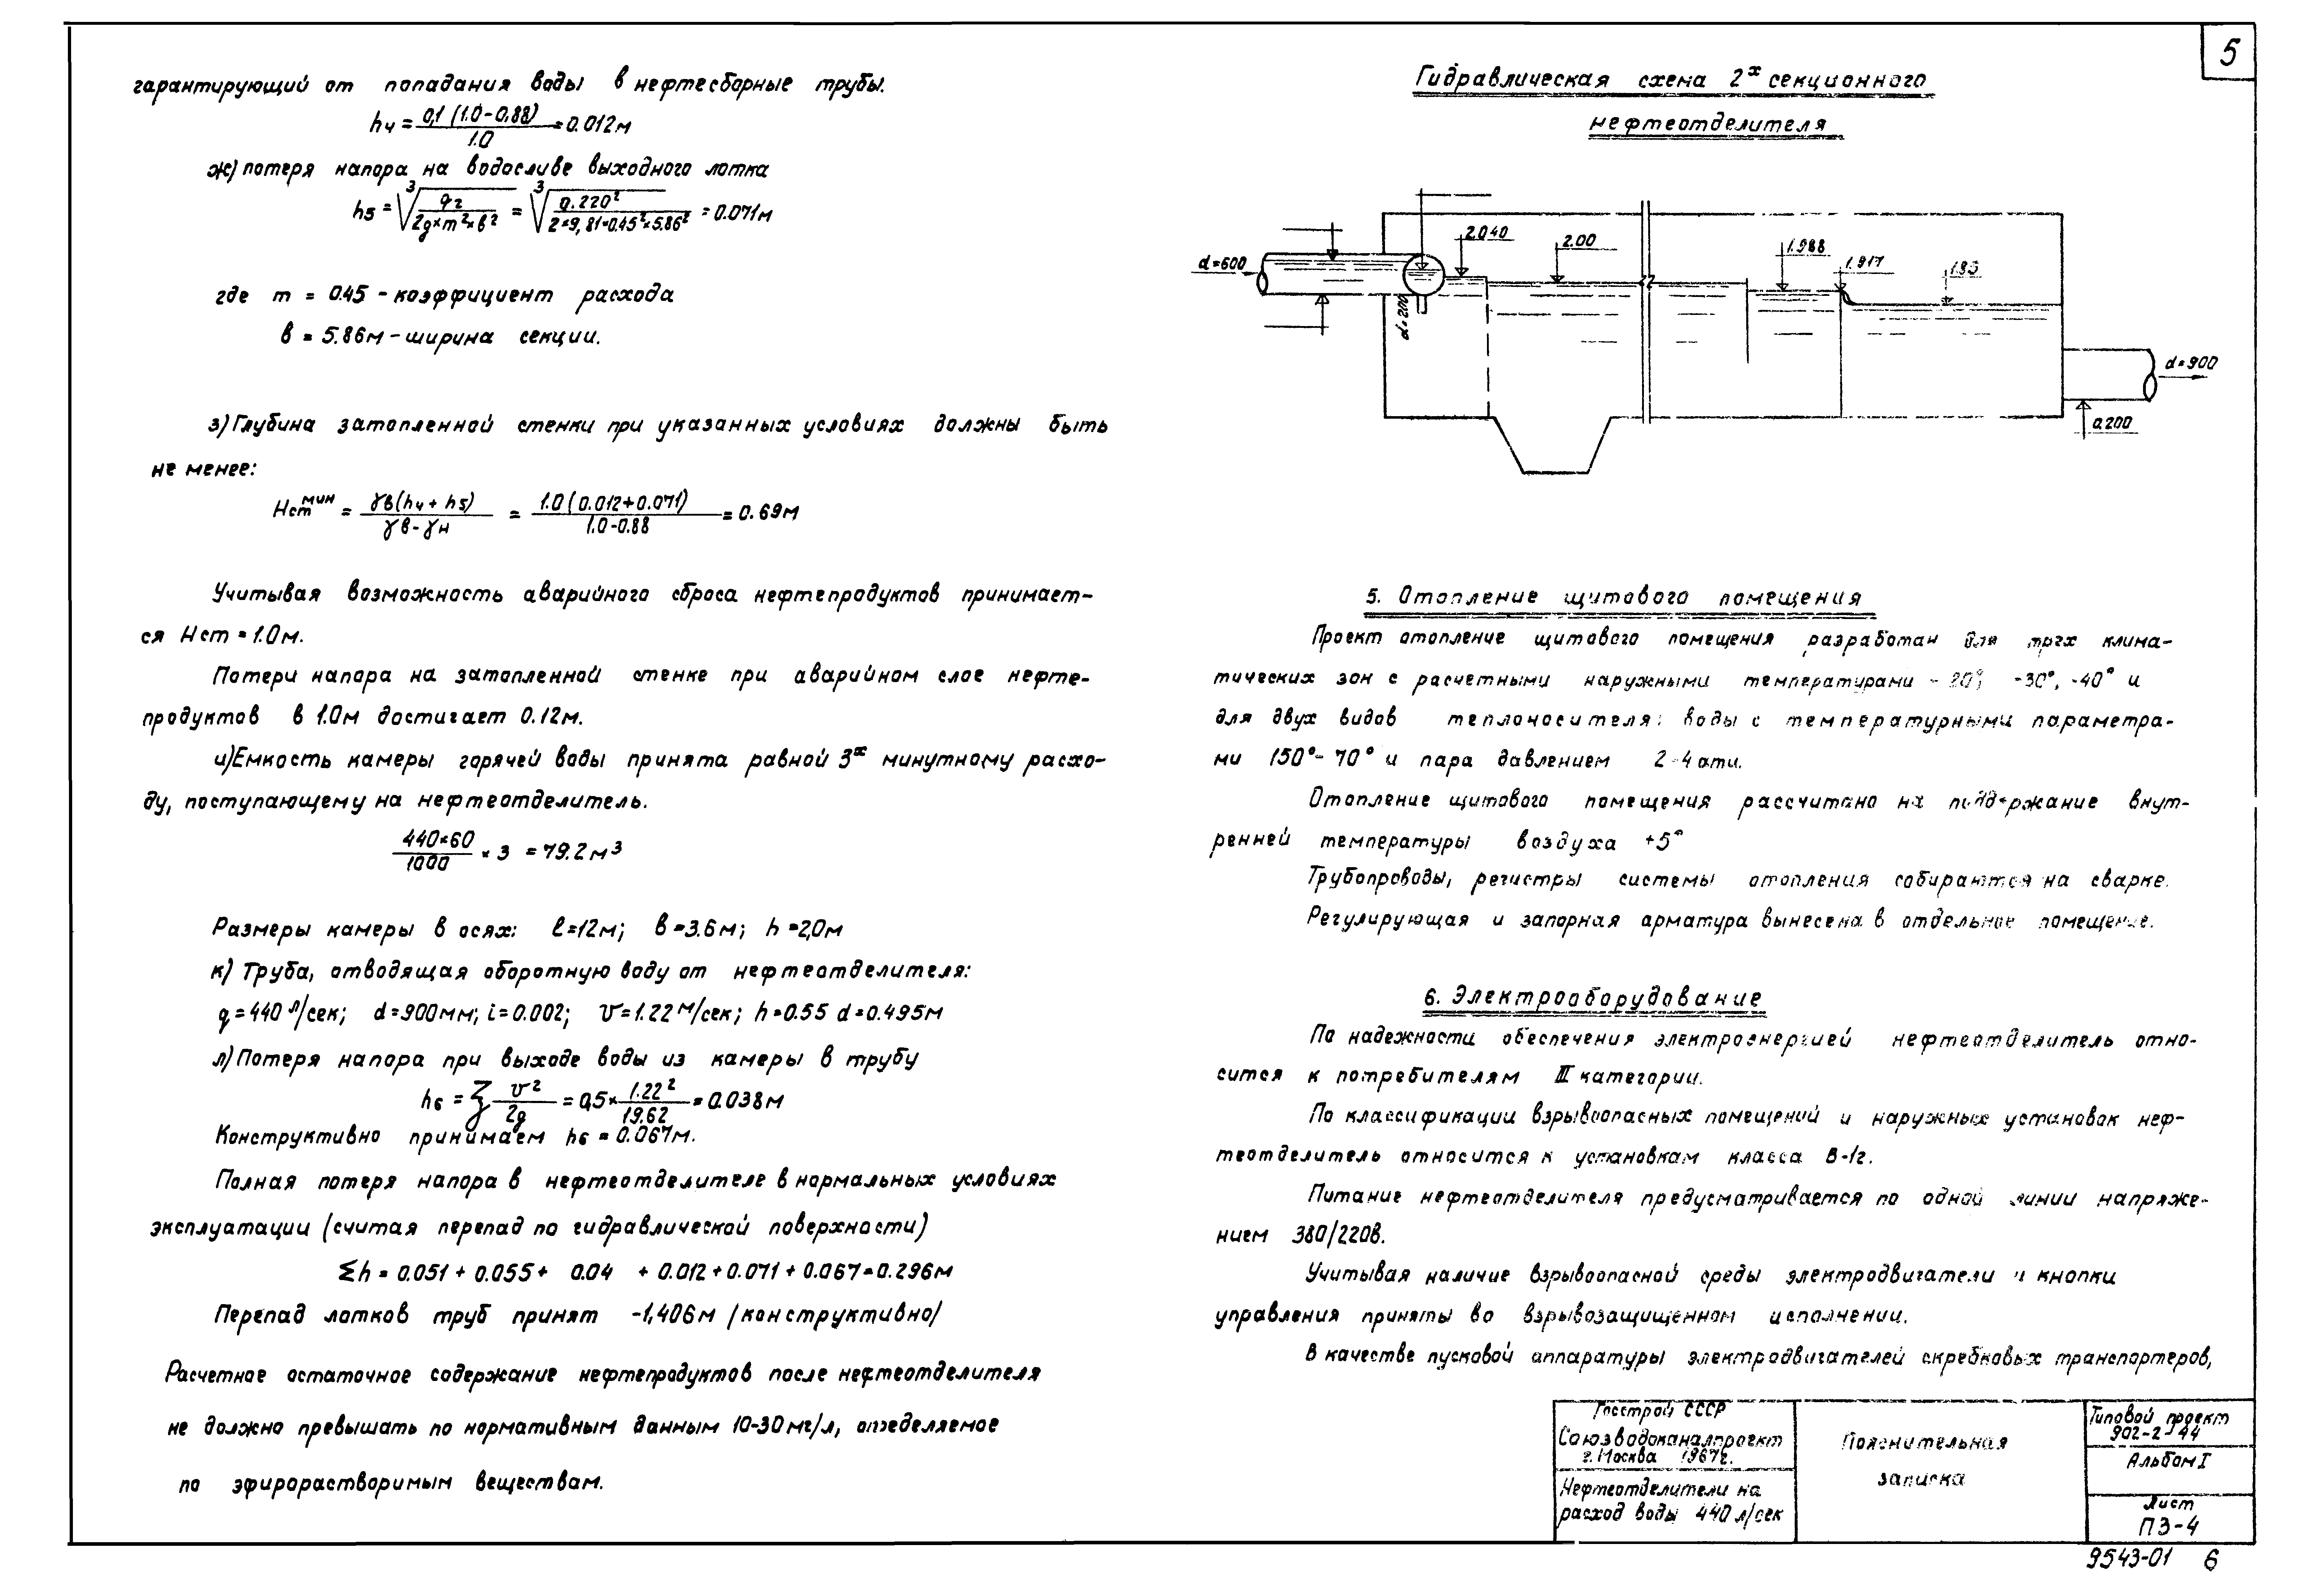 5
гарантирующий от попадания воды в нефтесборные трубы.
h4 = 0,1 (1.0-0,88) / 1.0 = 0.012м
ж) потеря напора на водосливе выходного лотка
h5 = ∛(q² / 2g×m²×в²) = ∛(0.220² / 2×9,81×0.45²×5.86²) = 0.071м
где m = 0.45 - коэффициент расхода
в = 5.86м - ширина секции.
з) Глубина затопленной стенки при указанных условиях должны быть
не менее:
Нст мин = γв(h4 + h5) / γв-γн = 1.0 (0.012+0.071) / 1.0-0.88 = 0.69м
Учитывая возможность аварийного сброса нефтепродуктов принимает-
ся Нст = 1.0м.
Потери напора на затопленной стенке при аварийном слое нефте-
продуктов в 1.0м достигает 0.12м.
и) Емкость камеры горячей воды принята равной 3х минутному расхо-
ду, поступающему на нефтеотделитель.
440×60 / 1000 × 3 = 79.2м³
Размеры камеры в осях: ℓ=12м; в=3.6м; h=2,0м
к) Труба, отводящая оборотную воду от нефтеотделителя:
q=440 л/сек; d=900мм; i=0.002; v=1.22 м/сек; h=0.55 d=0.495м
л) Потеря напора при выходе воды из камеры в трубу
h6 = ξ v²/2g = 0,5× 1.22²/19.62 = 0.038м
Конструктивно принимаем h6 = 0.067м.
Полная потеря напора в нефтеотделителе в нормальных условиях
эксплуатации (считая перепад по гидравлической поверхности)
Σh = 0.051 + 0.055 + 0.04 + 0.012 + 0.071 + 0.067 = 0.296м
Перепад лотков труб принят -1,406м /конструктивно/
Расчетное остаточное содержание нефтепродуктов после нефтеотделителя
не должно превышать по нормативным данным 10-30 мг/л, определяемое
по эфирорастворимым веществам.
Гидравлическая схема 2х секционного
нефтеотделителя
d=600
d=200
2.040
2.00
1.988
1.917
1.85
d=900
0.200
5. Отопление щитового помещения
Проект отопление щитового помещения разработан для трех клима-
тических зон с расчетными наружными температурами -20°, -30°, -40° и
для двух видов теплоносителя: воды с температурными параметра-
ми 150°-70° и пара давлением 2-4 ати.
Отопление щитового помещения рассчитано на поддержание внут-
ренней температуры воздуха +5°
Трубопроводы, регистры системы отопления собираются на сварке.
Регулирующая и запорная арматура вынесена в отдельное помещение.
6. Электрооборудование
По надежности обеспечения электроэнергией нефтеотделитель отно-
сится к потребителям III категории.
По классификации взрывоопасных помещений и наружных установок неф-
теотделитель относится к установкам класса В-1г.
Питание нефтеотделителя предусматривается по одной линии напряже-
нием 380/220в.
Учитывая наличие взрывоопасной среды электродвигатели и кнопки
управления приняты во взрывозащищенном исполнении.
В качестве пусковой аппаратуры электродвигателей скребковых транспортеров,
Госстрой СССР
Союзводоканалпроект
г. Москва 1967г.
Нефтеотделители на
расход воды 440 л/сек
Пояснительная
записка
Типовой проект
902-2-44
Альбом I
Лист
ПЗ-4
9543-01 6